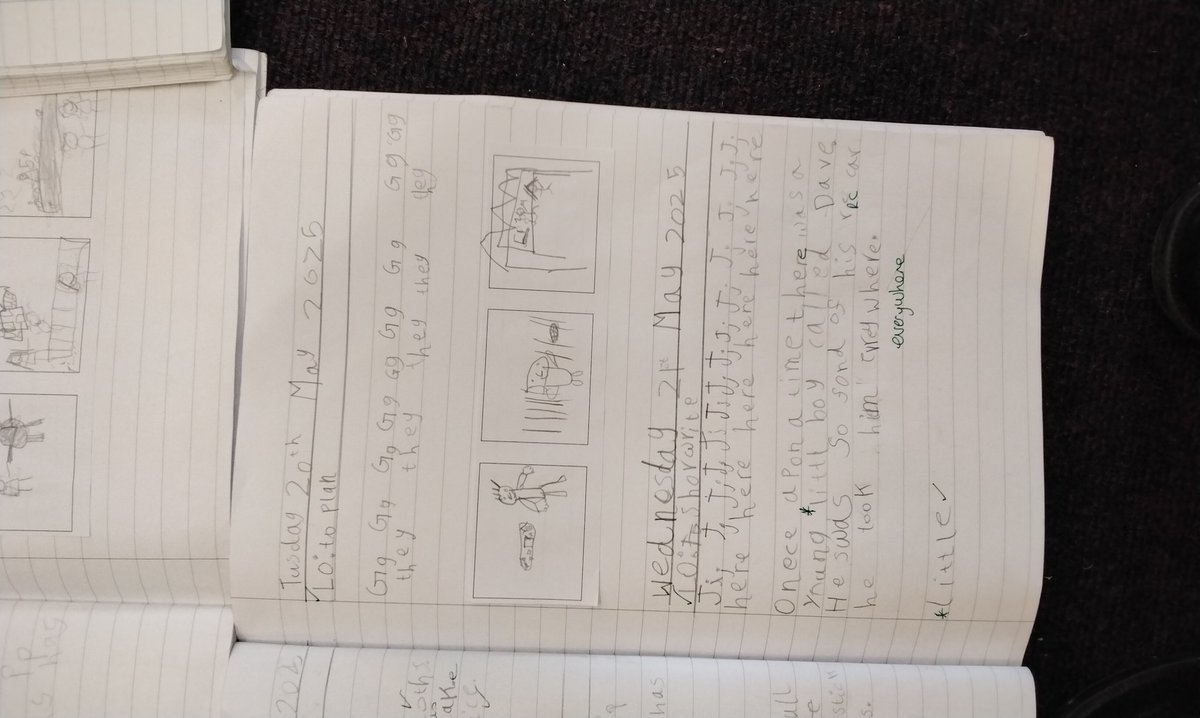 Tusday 20th May 2025
LO: to plan
Gg Gg Gg Gg Gg Gg Gg Gg Gg Gg
they they they they they
Wednesday 21st May 2025
LO: to sharwrite
Jj Jj Jj Jj Jj Jj Jj Jj Jj Jj Jj Jj
here here here here here here here
Onece apon a time there was a
young * littll boy called Dave.
He suds So fond of his rc car
rc
he took him evrywhere.
everywhere
*little ✓
2025
oths
us
ake
has
ull
stic"
s.
is has